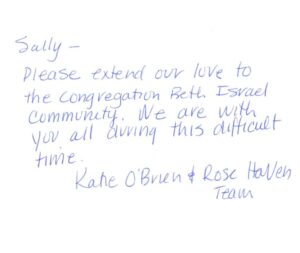 Sally –
Please extend our love to
the Congregation Beth Israel
Community. We are with
you all during this difficult
time.
Katie O'Brien & Rose Haven
Team